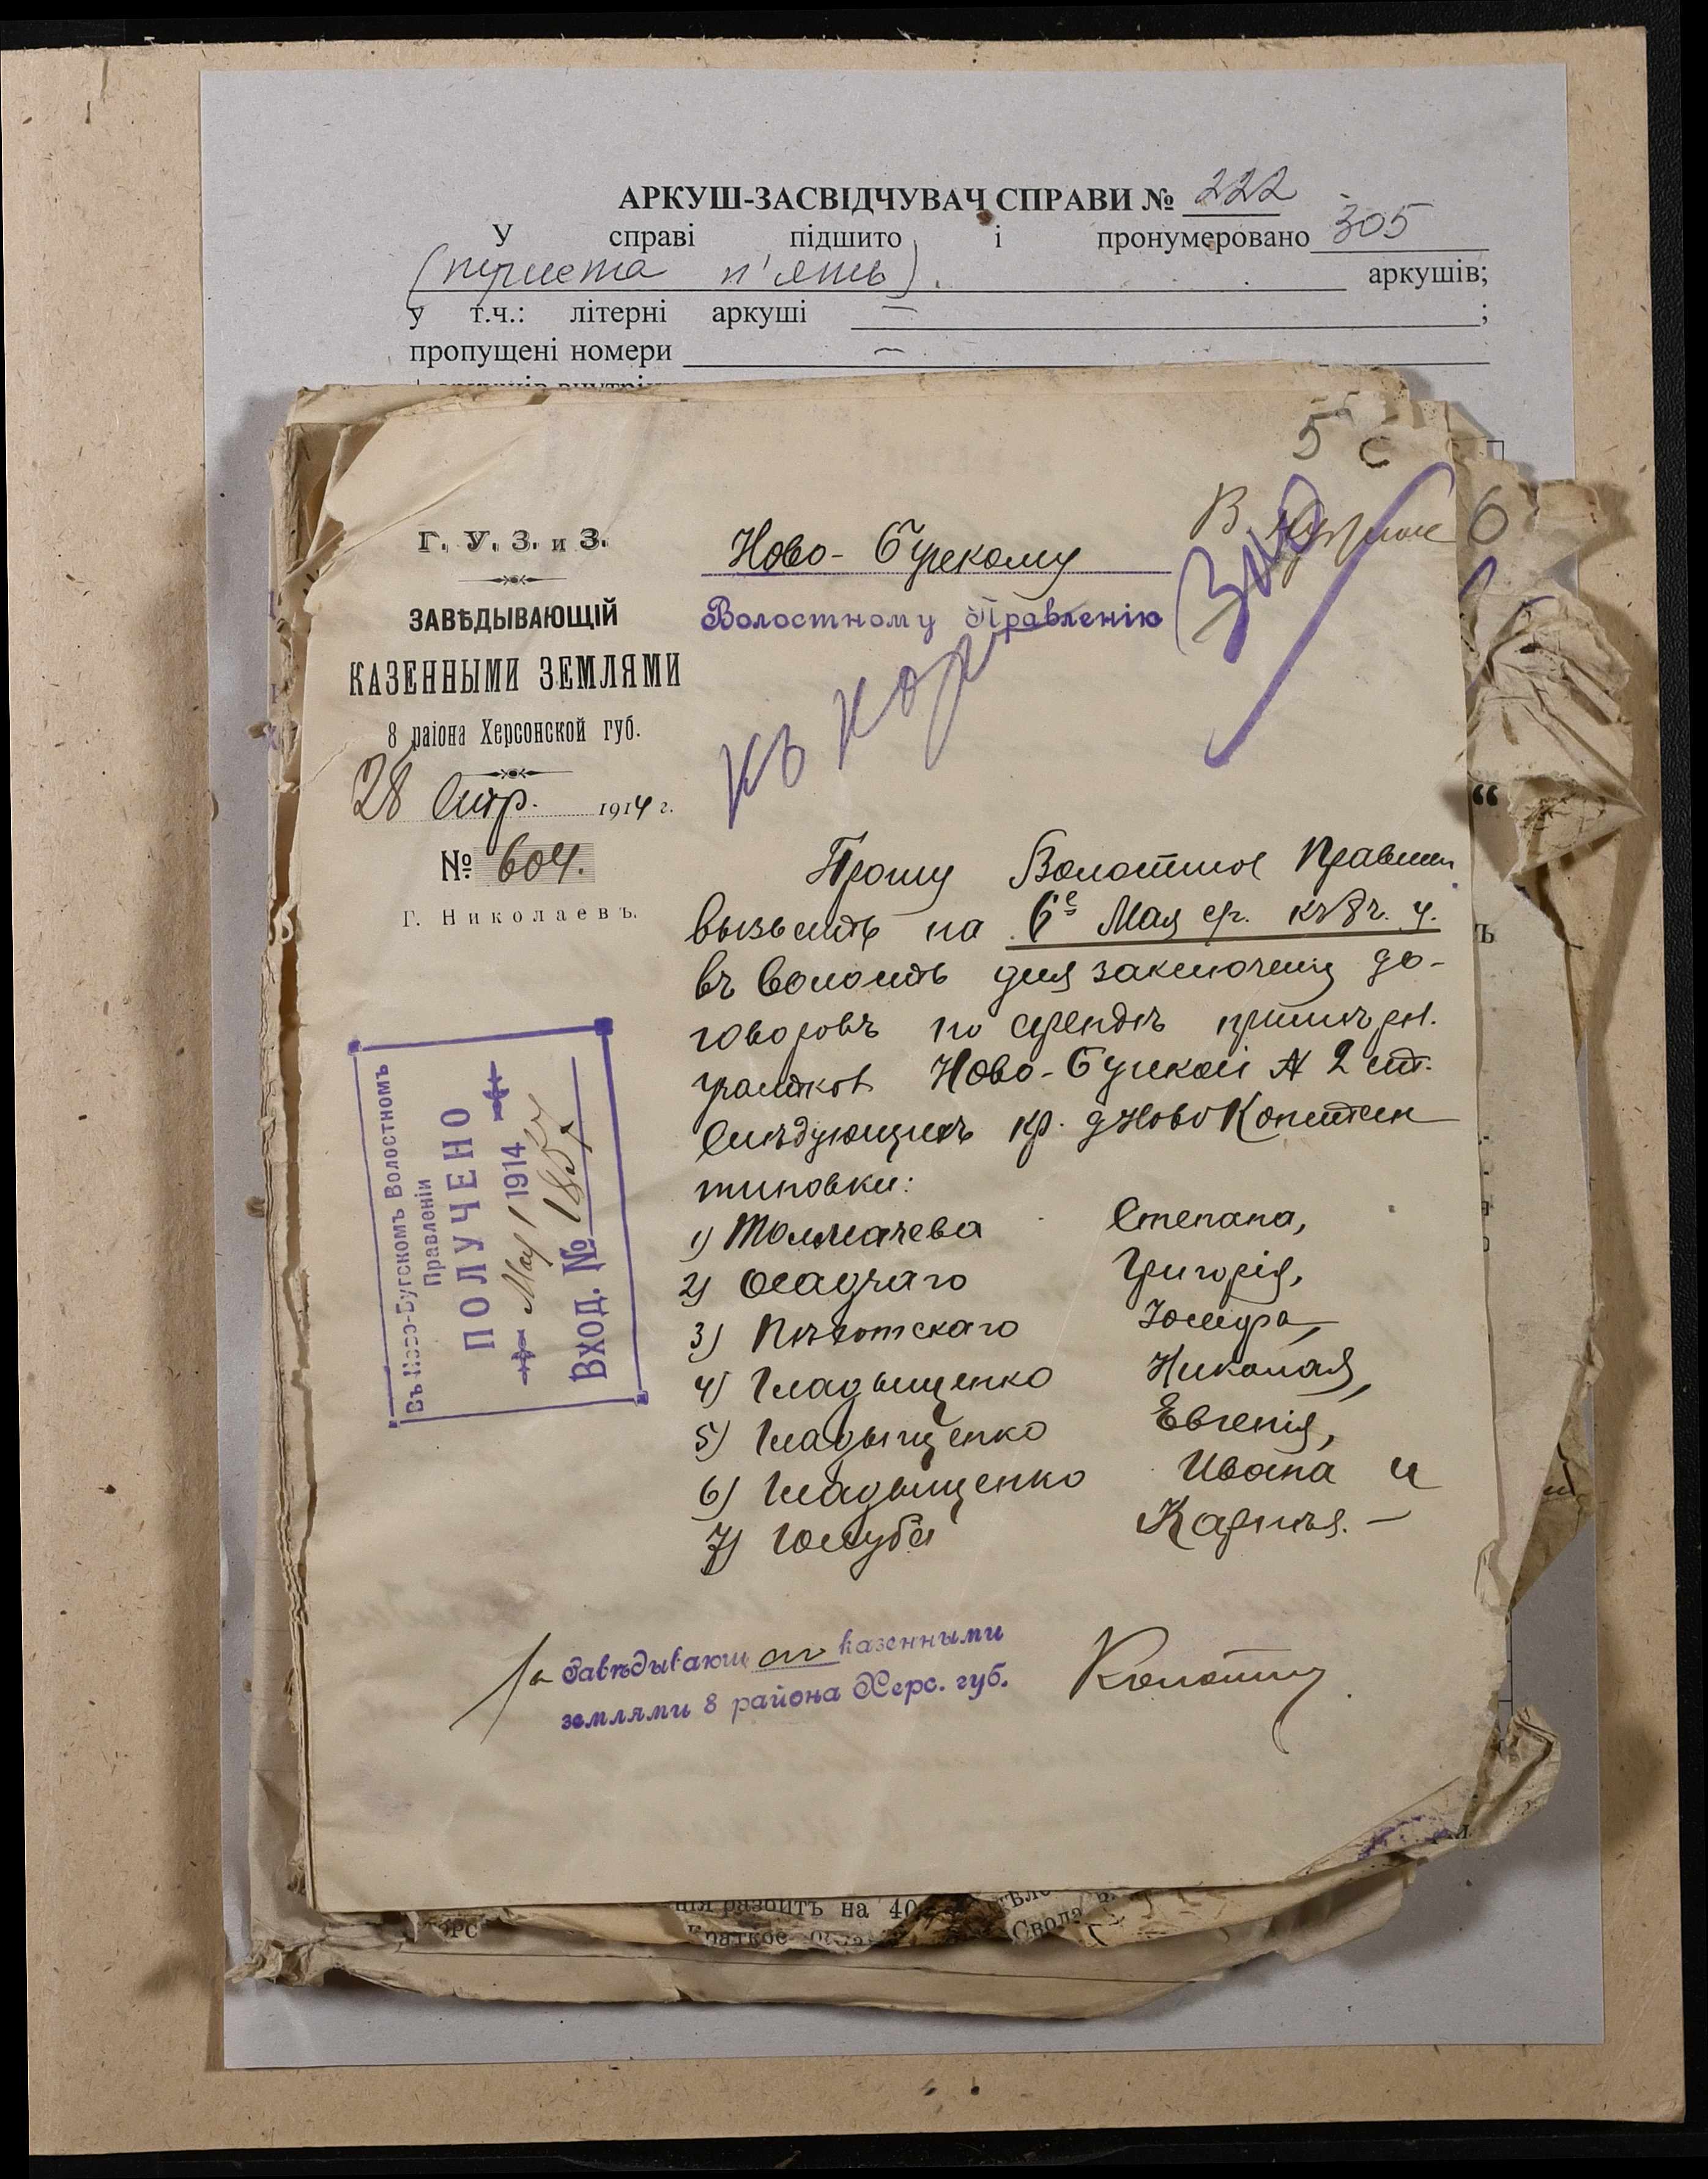 АРКУШ-ЗАСВІДЧУВАЧ СПРАВИ № 222
У справі підшито і пронумеровано 305
(триста п'ять). аркушів;
у т.ч.: літерні аркуші — ;
пропущені номери —
5
6
Г. У. З. и З.
ЗАВѢДЫВАЮЩІЙ
КАЗЕННЫМИ ЗЕМЛЯМИ
8 раіона Херсонской губ.
28 Апр. 1914 г.
№ 604.
Г. Николаевъ.
Ново-Бугскому
Волостному Правленію
къ
Прошу Волостное Правлен
вызвать на 6е Мая с/г. къ 8 ч. у.
въ волость для заключенія до-
говоровъ по арендѣ
участковъ Ново-Бугской № 2 ст.
слѣдующихъ кр. д Ново Констан
тиновки:
1) Толмачева Степана,
2) Осадчаго Григорія,
3) Пѣхотскаго Іосифа,
4) Гладыщенко Николая,
5) Гладыщенко Евгенія,
6) Гладыщенко Ивана и
7) Голуба Карнѣя. —
Въ Ново-Бугскомъ Волостномъ
Правленіи
ПОЛУЧЕНО
Мая 1 1914
Вход. №
За Завѣдывающ казенными
землями 8 района Херс. губ.
ія разбитъ на 40
Краткое
Свода